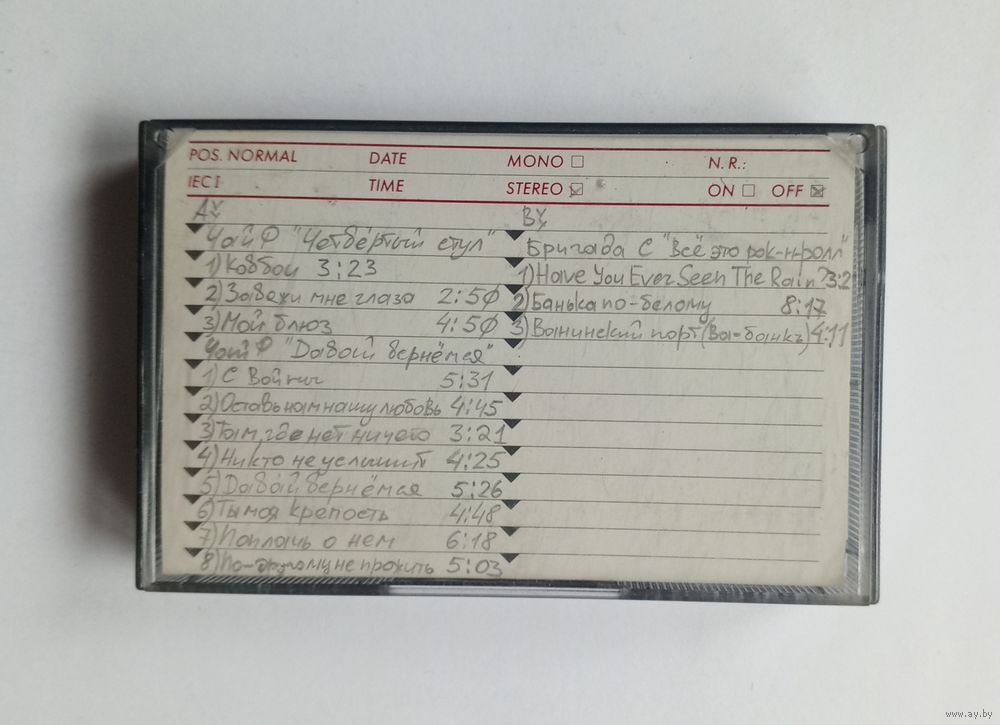 POS. NORMAL DATE MONO N.R.:
IEC I TIME STEREO ON OFF
A
B
ЧайФ "Четвёртый стул"
1) Ковбои 3:23
2) Завяжи мне глаза 2:50
3) Мой блюз 4:50
ЧайФ "Давай вернёмся"
1) С войны 5:31
2) Оставь нам нашу любовь 4:45
3) Там, где нет ничего 3:21
4) Никто не услышит 4:25
5) Давай вернёмся 5:26
6) Ты моя крепость 4:48
7) Поплачь о нем 6:18
8) По-другому не прожить 5:03
Бригада С "Всё это рок-н-ролл"
1) Have You Ever Seen The Rain?
2) Банька по-белому 8:17
3) Ванинский порт (Ва-банкъ) 4:11
www.ay.by